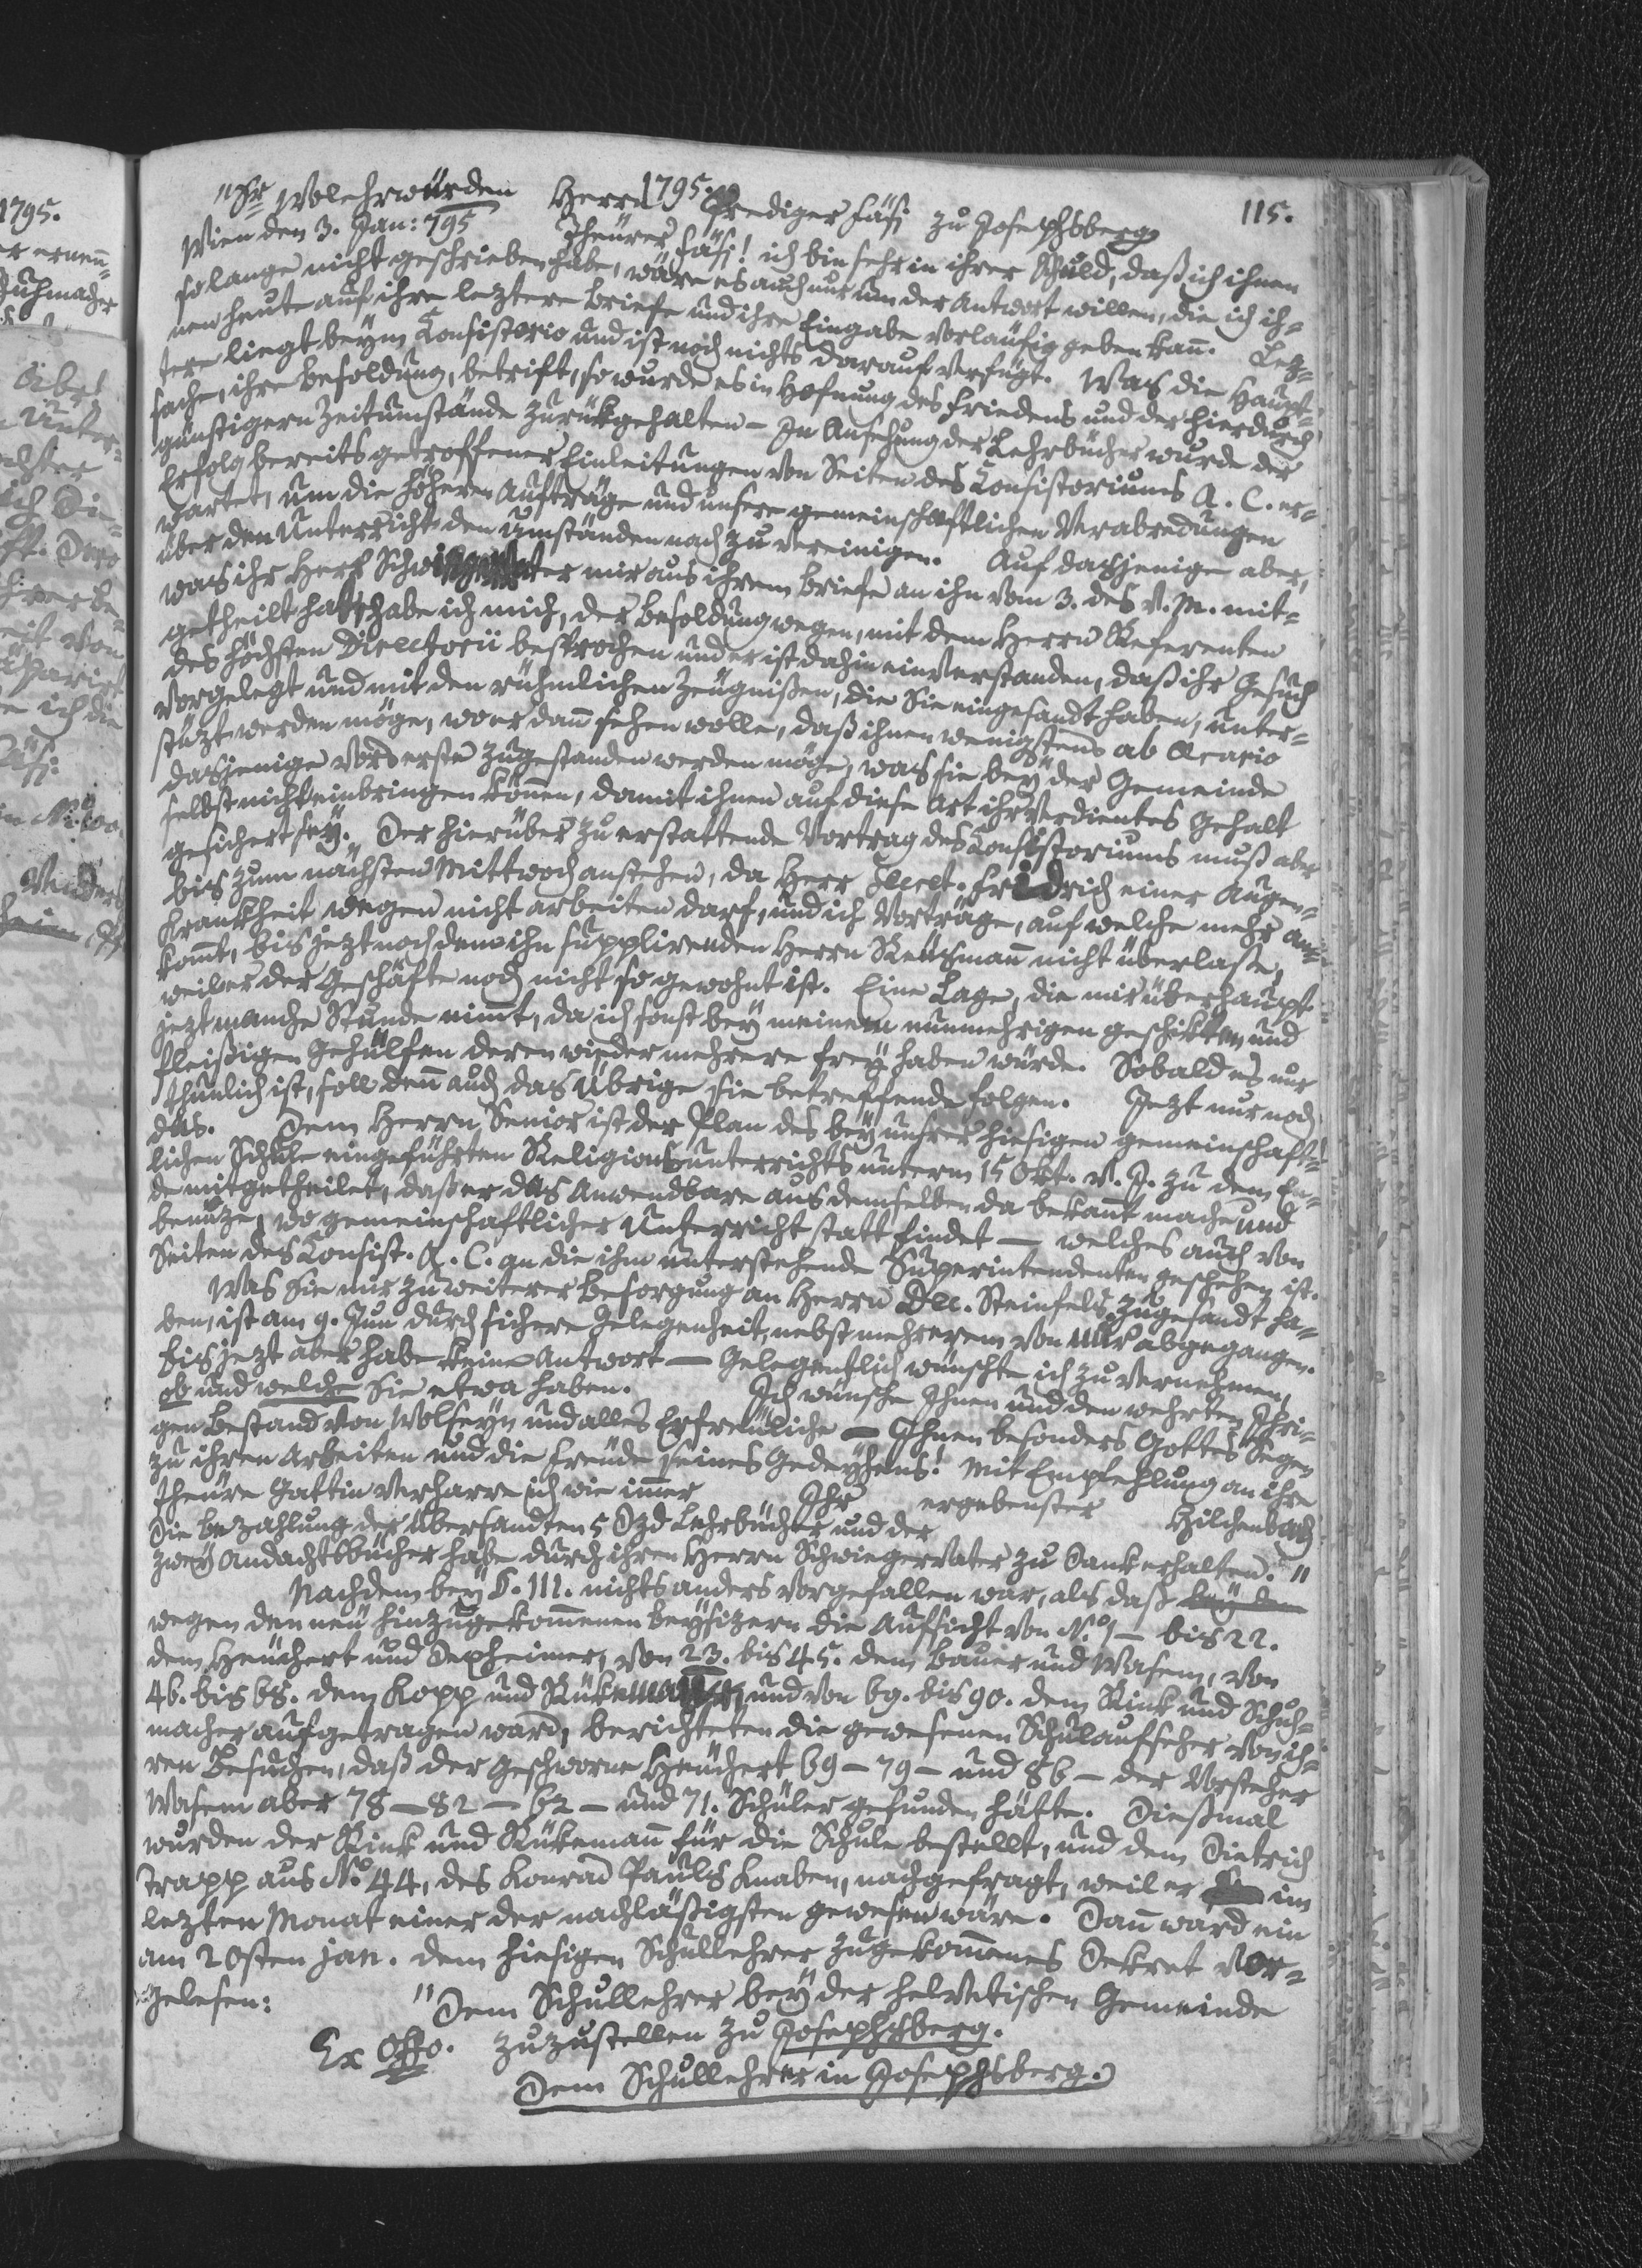 1795. 115.
"Sr Wolehrwürden Herrn Prediger Fäsi zu Josephsberg
Wien den 3. Jan: 795 Theurer Fäsi! ich bin sehr in ihrer Schuld, daß ich ihnen
so lange nicht geschrieben habe, wäre es auch nur um der Antwort willen, die ich ih=
nen heute auf ihre leztere Briefe und ihre Eingabe vorläufig geben kañ. Lez=
tere liegt beym Consistorio und ist noch nichts darauf verfügt. Was die Haupt=
sache, ihre Besoldung, betrift, so wurde es in Hofnung des Friedens und der hierdurch
günstigern Zeitumstände zurükgehalten - In Ansehung der Lehrbücher wurde der
Erfolg bereits getroffener Einleitungen von Seiten des Consistoriums A. C. er=
wartet, um die höheren Aufträge und unsere gemeinschaftlichen Verabredungen
über den Unterricht den Umständen nach zu vereinigen. Auf dasjenige aber,
was ihr Herr mir aus ihrem Briefe an ihn vom 3. des v. M. mit=
getheilt hat, habe ich mich, der Besoldung wegen, mit dem Herrn Referenten
des höchsten Directorii besprochen und er ist dahin einverstanden, daß ihr Gesuch
vorgelegt und mit den rühmlichen Zeugnißen, die Sie eingesandt haben, unter=
stüzt werden möge, wo er dañ sehen wolle, daß ihnen wenigstens ab Aerario
dasjenige vorderste zugestanden werden möge, was sie bey der Gemeinde
selbst nicht einbringen köñen, damit ihnen auf diese Art ihr verdientes Gehalt
gesichert sey. Der hierüber zu erstattende Vortrag des Consistoriums muß aber
bis zum nächsten Mittwoch anstehen, da Herr Secret. Fridrich einer Augen=
krankheit wegen nicht arbeiten darf, und ich Vorträge, auf welche mehr an=
kom̃t, bis jezt noch dem ihn supplirenden Herrn nicht überlaße,
weil er der Geschäfte noch nicht so gewohnt ist. Eine Lage, die mir überhaupt
jezt manche Stunde nim̃t, da ich sonst bey meinem nunmehrigen geschikten und
fleißigen Gehülfen deren wieder mehrere frey haben würde. Sobald es nur
thunlich ist, soll deñ auch das Übrige sie betreffende folgen. Jezt nur noch
das. Dem Herrn Senior ist der Plan des bey unsrer hiesigen gemeinschaft=
lichen Schule eingeführten Religionsunterrichts unterm 15 Okt. v. J. zu dem En=
de mitgetheilet, daß er das Anwendbare aus demselben da bekañt mache und
benuze, wo gemeinschaftlicher Unterricht statt findet — welches auch von
Seiten des Consist. A. C. an die ihm unterstehende Superintendenten geschehen ist.
Was Sie mir zu weiterer Besorgung an Herrn Dec. Steinfels zugesandt ha=
ben, ist am 9. Jun durch sichere Gelegenheit, nebst mehrerem von mir abgegangen.
Bis jezt aber habe keine Antwort — Gelegentlich wünschte ich zu vernehmen,
ob und welche Sie etwa haben. Ich wünsche Ihnen und den wehrten Ihri=
gen Bestand von Wolseyn und alles Erfreuliche — Ihnen besonders Gottes Segen
zu ihren Arbeiten und die Freude seines Gedeyhens! Mit Empfehlung an ihre
theure Gattin verharre ich wie im̃er Ihr ergebenster Hilchenbach
Die Bezahlung der übersandten 5 Dzd Lehrbücher und der
zwey Andachtsbücher habe durch ihren Herrn Schwiegervater zu Dank erhalten."
Nachdem bey §. 111. nichts anders vorgefallen war, als daß bey den
wegen den neu hinzugekom̃enen Beysizern die Aufsicht von No 1 — bis 22.
dem Heuchert und Dexheimer, von 23. bis 45. dem Bauer und Wasem, von
46. bis 68. dem Kopp und Rükemañ, und von 69. bis 90. dem Rink und Schuh=
macher aufgetragen ward, berichteten die gewesenen Schulaufseher von ih=
ren Besuchen, daß der Geschworne Heuchert 69 — 79 — und 86 — der Vorsteher
Wasem aber 78 — 82 — 62 — und 71. Schüler gefunden hätte. Dießmal
wurden der Rink und Rükemañ für die Schule bestellt, und dem Dietrich
Trapp aus No 44, des Konrad Pauls Knaben, nachgefragt, weil er im
lezten Monat einer der nachläßigsten gewesen wäre. Dañ ward ein
am 20sten Jan. dem hiesigen Schullehrer zugekom̃enes Dekret vor=
gelesen: "Dem Schullehrer bey der helvetischen Gemeinde
Ex Offo. zuzustellen zu Josephsberg.
Dem Schullehrer in Josephsberg.